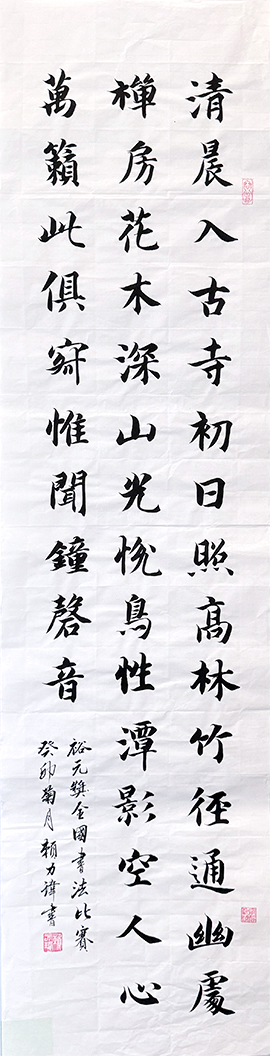 清晨入古寺初日照高林竹徑通幽處
禪房花木深山光悅鳥性潭影空人心
萬籟此俱寂惟聞鐘磬音
裕元獎全國書法比賽
癸卯菊月賴力諱書